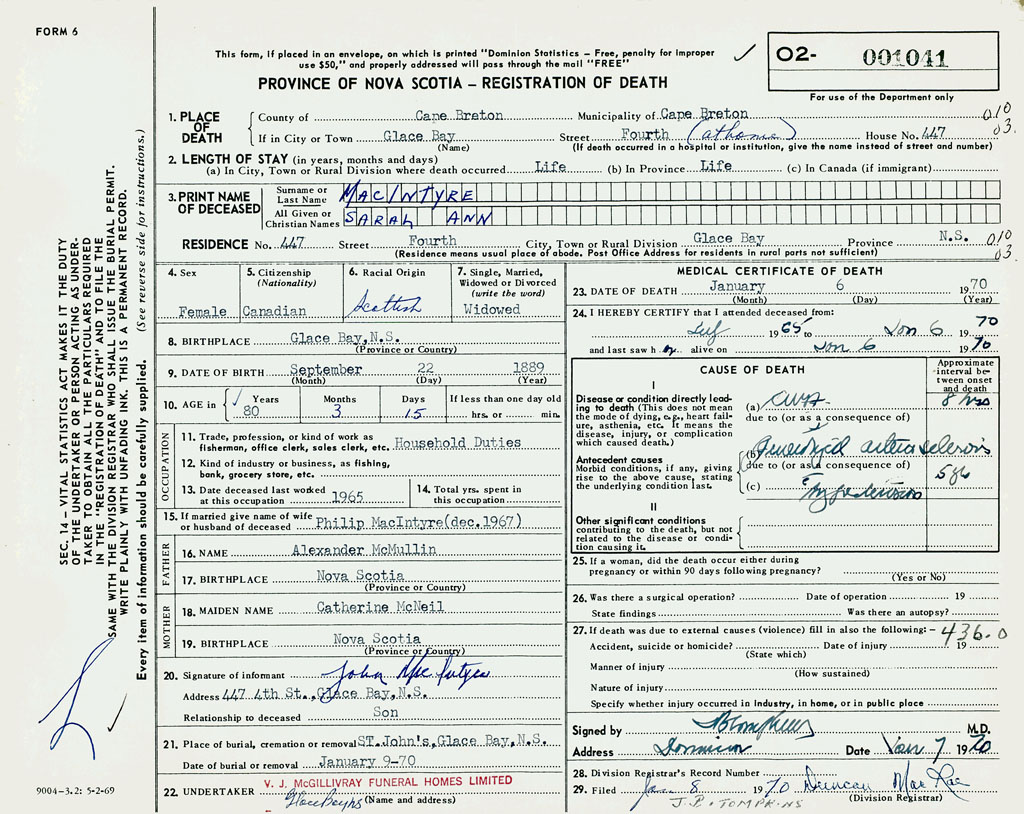 FORM 6
This form, if placed in an envelope, on which is printed "Dominion Statistics – Free, penalty for improper
use $50," and properly addressed will pass through the mail "FREE"
PROVINCE OF NOVA SCOTIA – REGISTRATION OF DEATH
O2- 001041
For use of the Department only
1. PLACE OF DEATH
County of Cape Breton Municipality of Cape Breton 010
If in City or Town Glace Bay Street Fourth (at home) House No. 447 03.
(Name) (If death occurred in a hospital or institution, give the name instead of street and number)
2. LENGTH OF STAY (in years, months and days)
(a) In City, Town or Rural Division where death occurred Life (b) In Province Life (c) In Canada (if immigrant)
3. PRINT NAME OF DECEASED
Surname or Last Name MACINTYRE
All Given or Christian Names SARAH ANN
RESIDENCE No. 447 Street Fourth City, Town or Rural Division Glace Bay Province N.S. 010
(Residence means usual place of abode. Post Office Address for residents in rural parts not sufficient) 03.
4. Sex
Female
5. Citizenship
(Nationality)
Canadian
6. Racial Origin
Scottish
7. Single, Married,
Widowed or Divorced
(write the word)
Widowed
8. BIRTHPLACE Glace Bay, N.S.
(Province or Country)
9. DATE OF BIRTH September 22 1889
(Month) (Day) (Year)
10. AGE in Years Months Days If less than one day old
80 3 15 hrs. or min.
OCCUPATION
11. Trade, profession, or kind of work as
fisherman, office clerk, sales clerk, etc. Household Duties
12. Kind of industry or business, as fishing,
bank, grocery store, etc.
13. Date deceased last worked
at this occupation 1965
14. Total yrs. spent in
this occupation
15. If married give name of wife
or husband of deceased Philip MacIntyre(dec.1967)
FATHER
16. NAME Alexander McMullin
17. BIRTHPLACE Nova Scotia
(Province or Country)
MOTHER
18. MAIDEN NAME Catherine McNeil
19. BIRTHPLACE Nova Scotia
(Province or Country)
20. Signature of informant John MacIntyre
Address 447 4th St., Glace Bay, N.S.
Relationship to deceased Son
21. Place of burial, cremation or removal ST. John's, Glace Bay, N.S.
Date of burial or removal January 9-70
V. J. McGILLIVRAY FUNERAL HOMES LIMITED
22. UNDERTAKER Glace Bay NS (Name and address)
MEDICAL CERTIFICATE OF DEATH
23. DATE OF DEATH January 6 1970
(Month) (Day) (Year)
24. I HEREBY CERTIFY that I attended deceased from:
1965 to Jan 6 1970
and last saw h er alive on Jan 6 1970
CAUSE OF DEATH
Approximate
interval be-
tween onset
and death
I
Disease or condition directly lead-
ing to death (This does not mean
the mode of dying, e.g., heart fail-
ure, asthenia, etc. It means the
disease, injury, or complication
which caused death.)
(a) CVA 8 hrs
due to (or as a consequence of)
Antecedent causes
Morbid conditions, if any, giving
rise to the above cause, stating
the underlying condition last.
(b) Generalized arteriosclerosis
due to (or as a consequence of)
(c) Hypertension
II
Other significant conditions
contributing to the death, but not
related to the disease or condi-
tion causing it.
25. If a woman, did the death occur either during
pregnancy or within 90 days following pregnancy?
(Yes or No)
26. Was there a surgical operation? Date of operation 19
State findings Was there an autopsy?
27. If death was due to external causes (violence) fill in also the following:– 436.0
Accident, suicide or homicide? Date of injury 19
(State which)
Manner of injury
(How sustained)
Nature of injury
Specify whether injury occurred in industry, in home, or in public place
Signed by M.D.
Address Dominion Date Jan 7 1970
28. Division Registrar's Record Number
29. Filed Jan 8 1970 Duncan MacRae
J.P. TOMPKINS (Division Registrar)
SEC. 14 – VITAL STATISTICS ACT MAKES IT THE DUTY
OF THE UNDERTAKER OR PERSON ACTING AS UNDER-
TAKER TO OBTAIN ALL THE PARTICULARS REQUIRED
IN THE "REGISTRATION OF DEATH" AND TO FILE THE
SAME WITH THE DIVISION REGISTRAR WHO SHALL ISSUE THE BURIAL PERMIT.
WRITE PLAINLY WITH UNFADING INK. THIS IS A PERMANENT RECORD.
Every item of information should be carefully supplied. (See reverse side for instructions.)
9004-3.2: 5-2-69